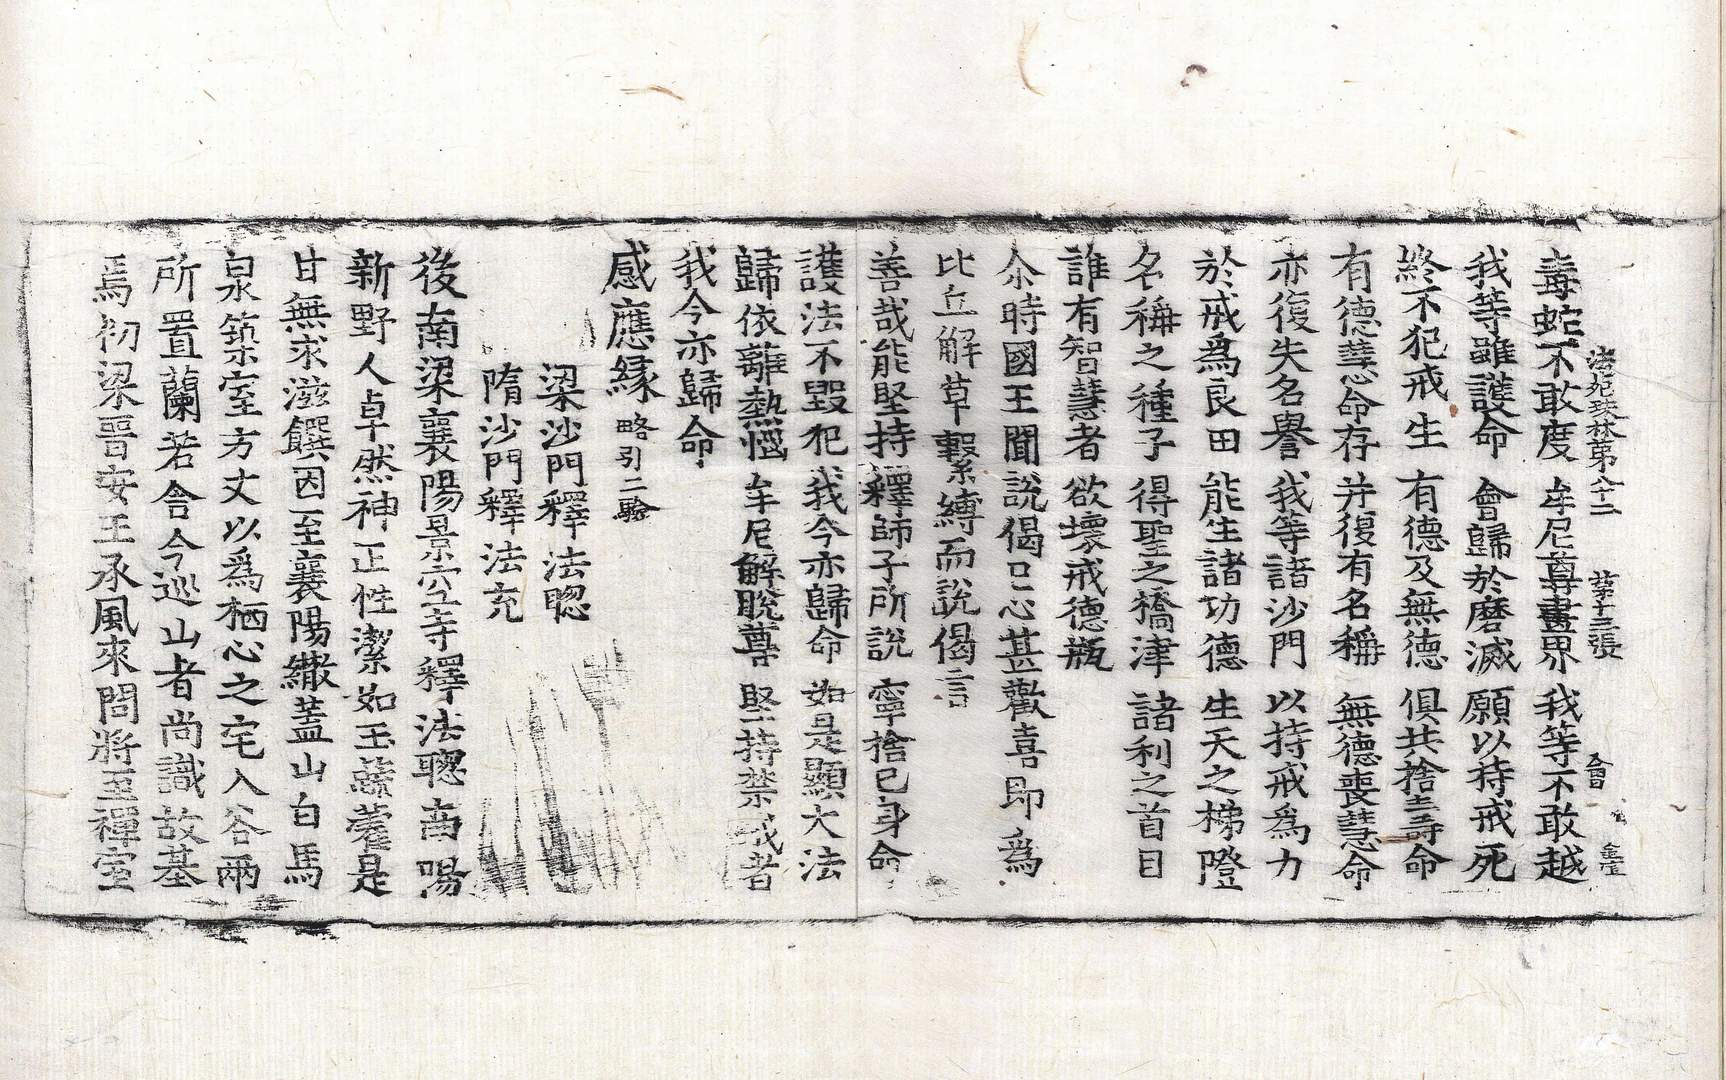 法苑珠林第八十二 第十三張 會 𡊮
毒蛇不敢度 牟尼尊畫界 我等不敢越
我等雖護命 會歸於磨滅 願以持戒死
終不犯戒生 有德及無德 俱共捨壽命
有德慧命存 并復有名稱 無德喪慧命
亦復失名譽 我等諸沙門 以持戒為力
於戒為良田 能生諸功德 生天之梯隥
名稱之種子 得聖之橋津 諸利之首目
誰有智慧者 欲壞戒德瓶
尒時國王聞說偈已心甚歡喜即為
比丘解草繫縛而說偈言
善哉能堅持 釋師子所說 寧捨已身命
護法不毀犯 我今亦歸命 如是顯大法
歸依離熱惱 牟尼解脫尊 堅持禁戒者
我今亦歸命
感應緣 略引二驗
梁沙門釋法聰
隋沙門釋法充
後南梁襄陽景空寺釋法聰南陽
新野人卓然神正性潔如玉蔬藿是
甘無求滋饌因至襄陽繖蓋山白馬
泉築室方丈以為栖心之宅入谷兩
所置蘭若舍今巡山者尚識故基
焉初梁晉安王承風來問將至禪室